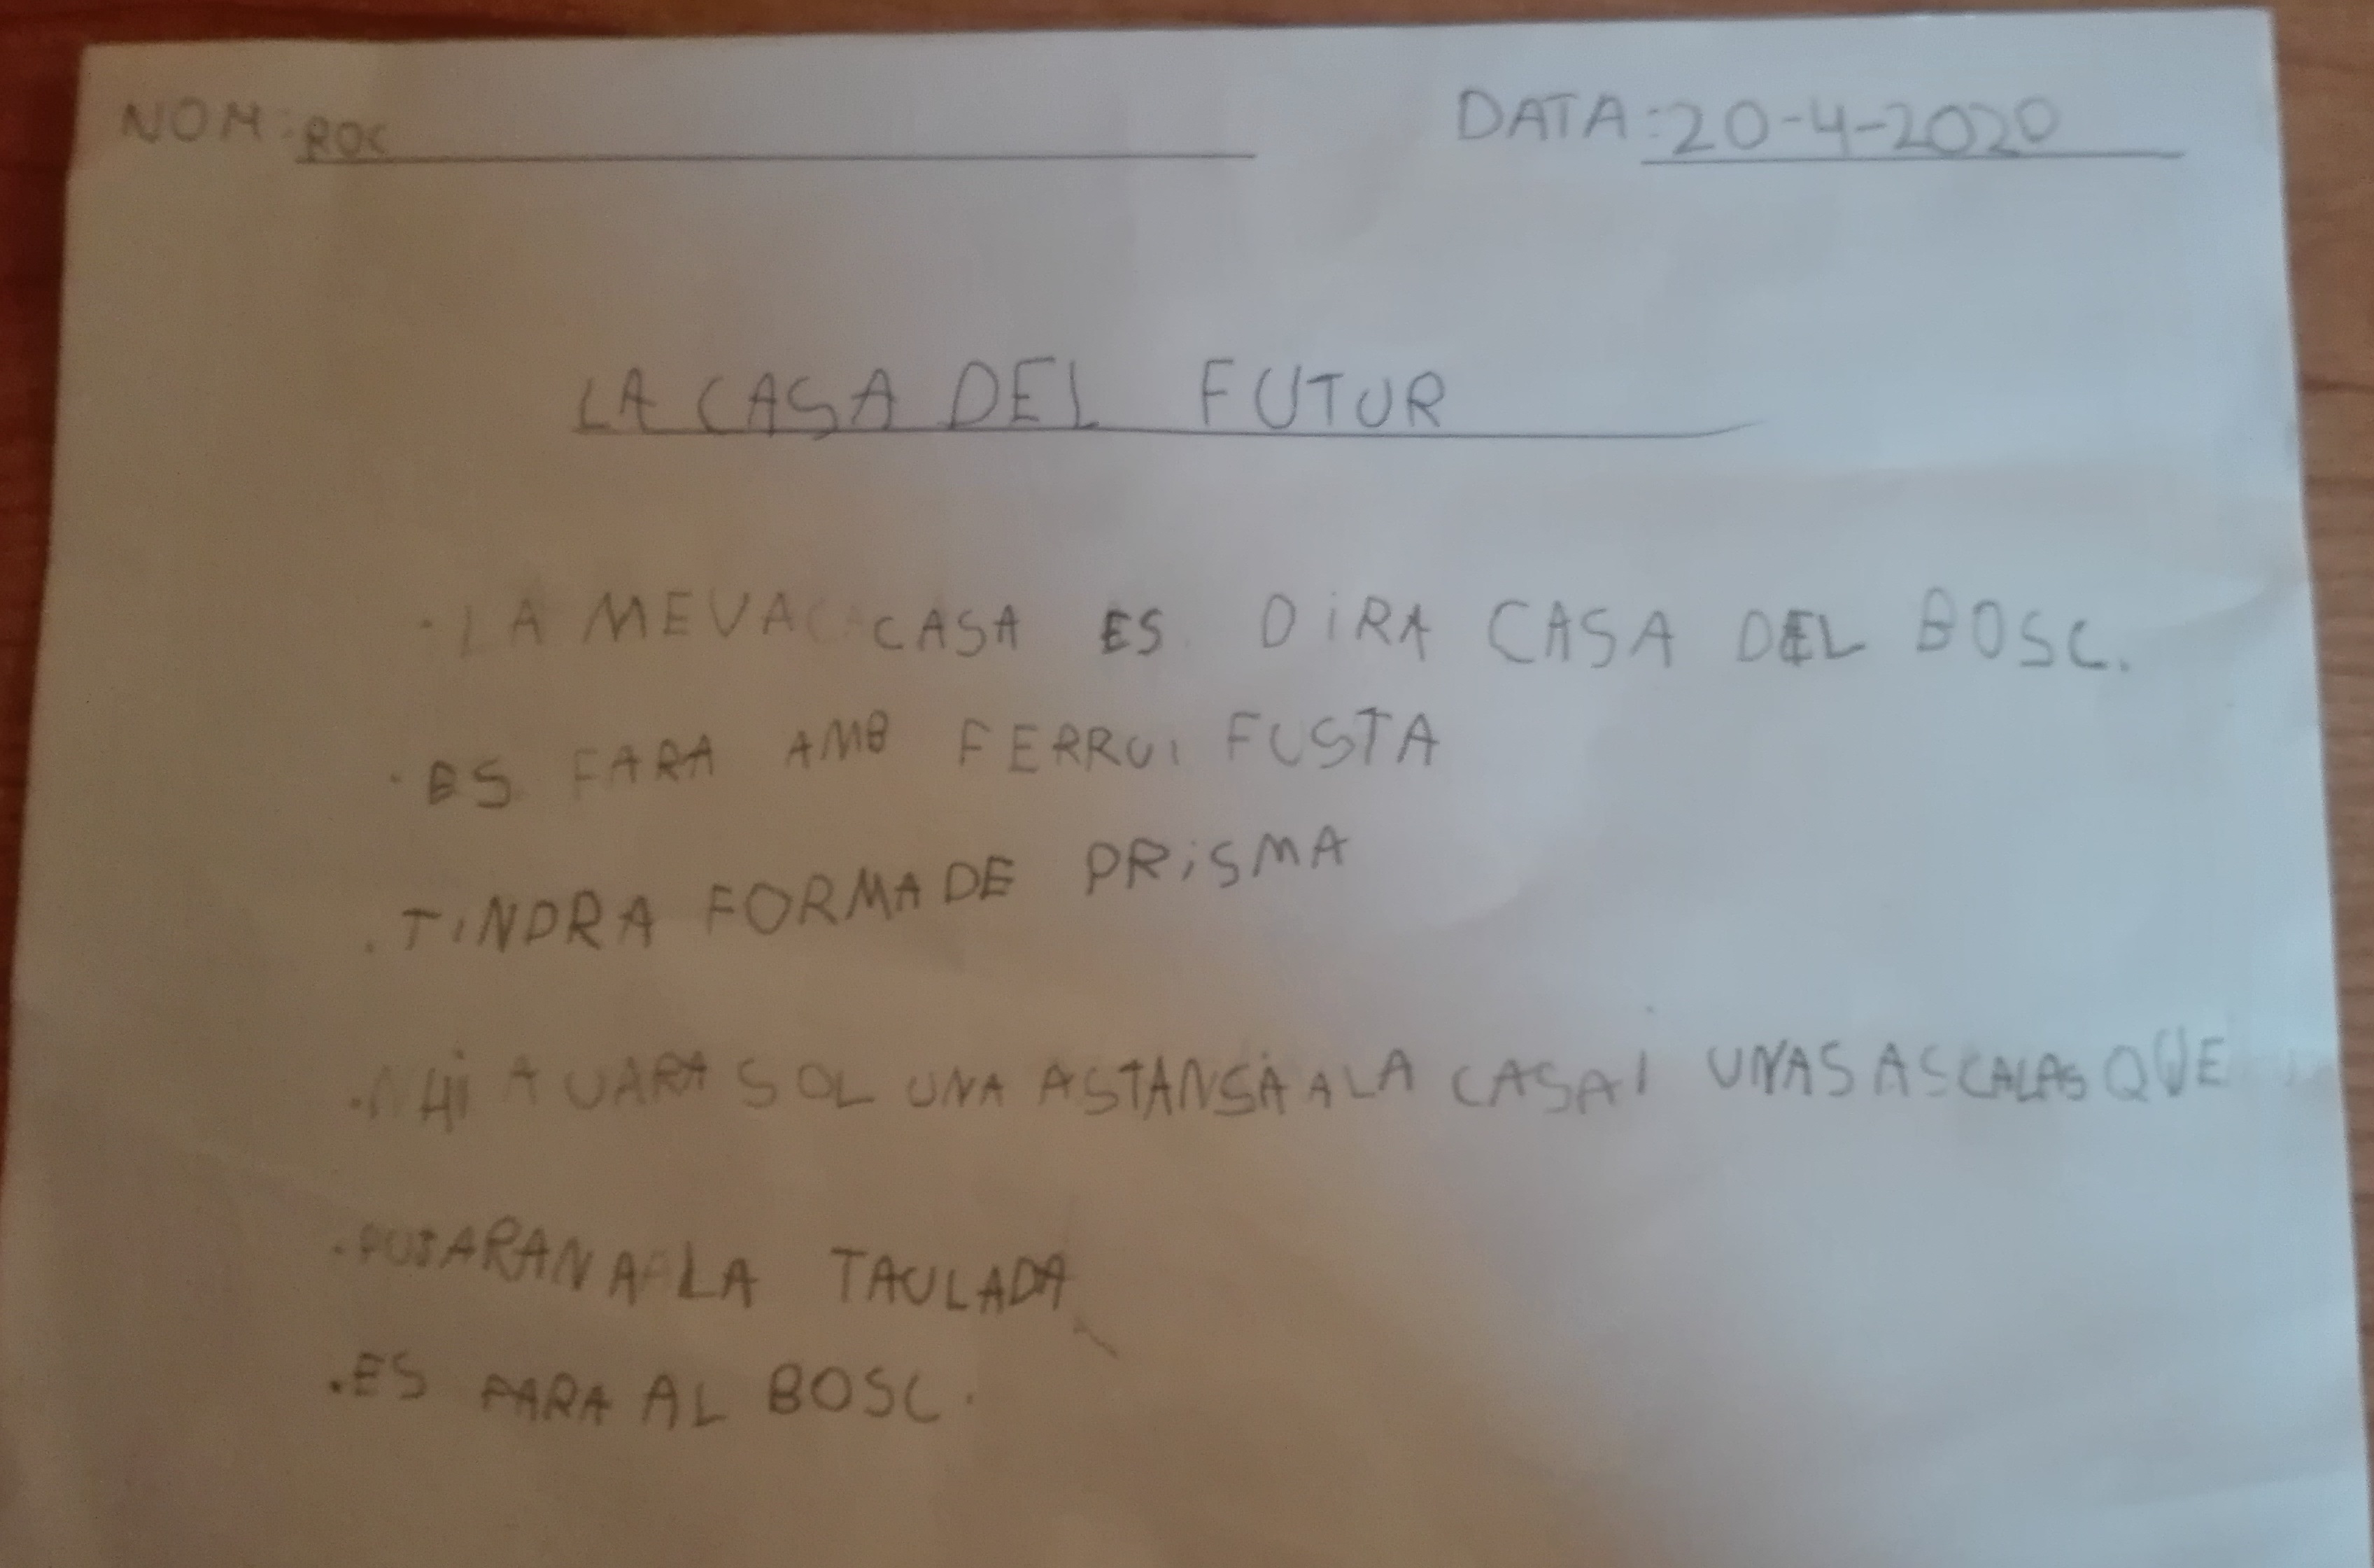 NOM: ROC DATA: 20-4-2020
LA CASA DEL FUTUR
· LA MEVA CASA ES DIRA CASA DEL BOSC.
· ES FARA AMB FERRU I FUSTA
. TINDRA FORMA DE PRISMA
. HI AURA SOL UNA ASTANSA A LA CASA I UNAS ASCALAS QUE
. PUJARAN A LA TAULADA
. ES FARA AL BOSC.